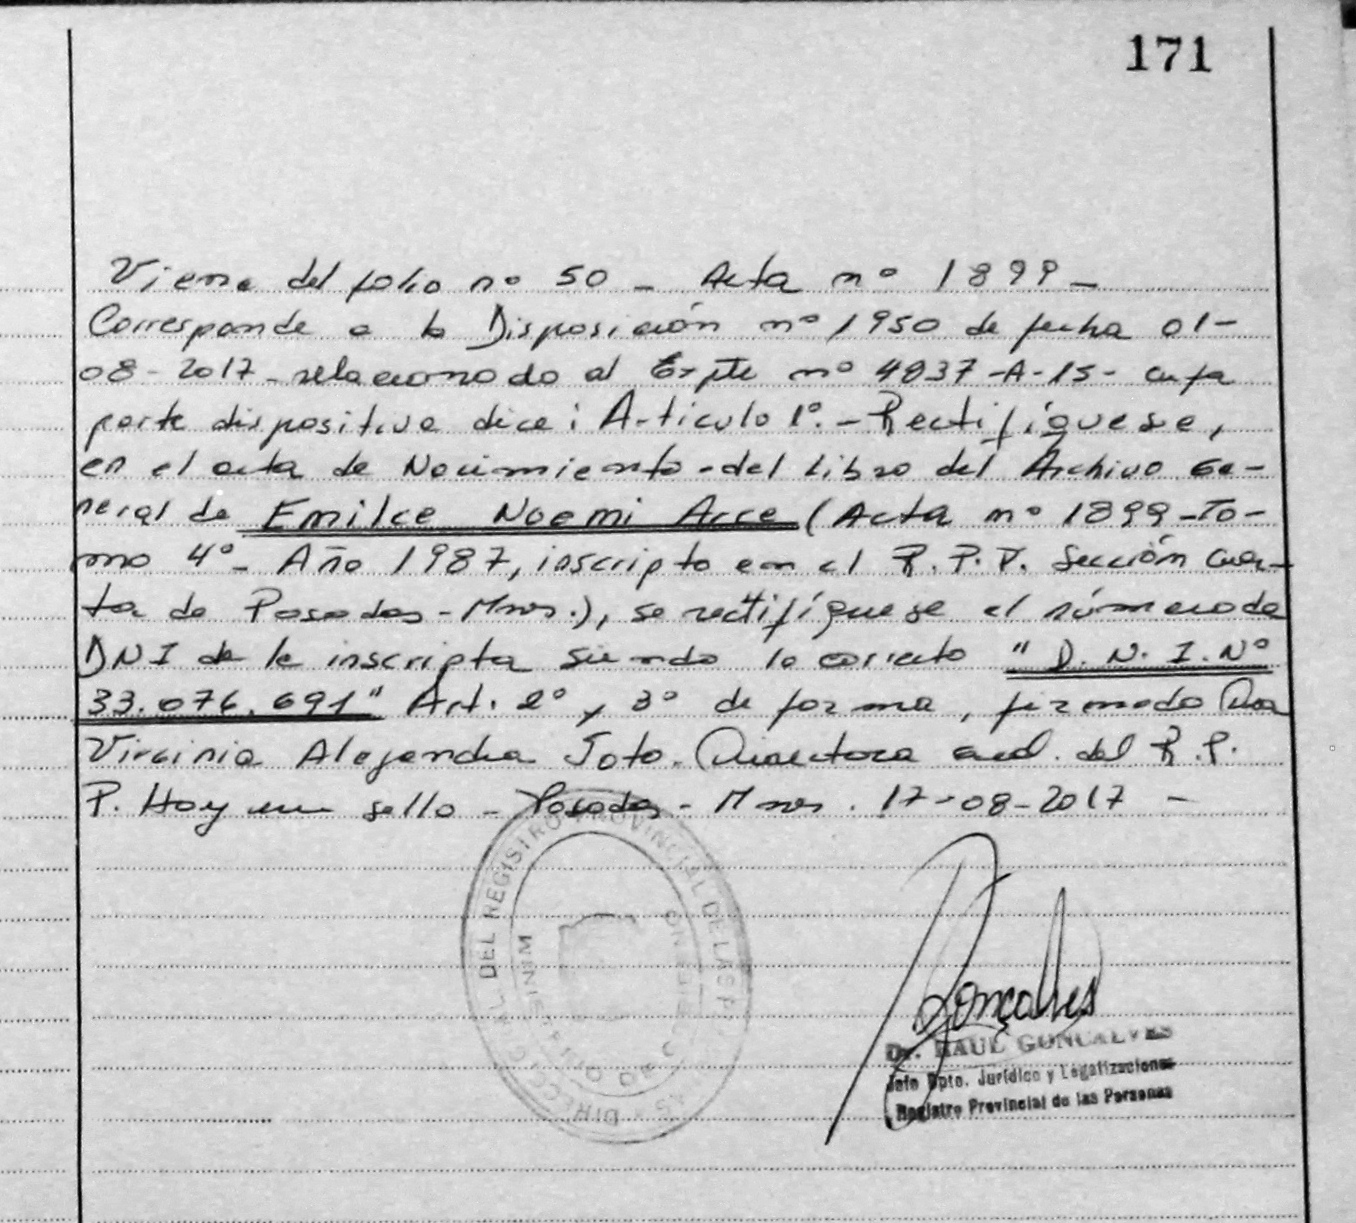 171
Viene del folio nº 50 - Acta nº 1899 -
Corresponde a la Disposición nº 1950 de fecha 01-
08-2017 - relacionado al Expte nº 4837-A-15 - cuya
parte dispositiva dice: Artículo 1º.- Rectifíquese,
en el acta de Nacimiento - del Libro del Archivo Ge-
neral de Emilce Noemi Arce (Acta nº 1899 - To-
mo 4º - Año 1987, inscripto en el R.P.P. Sección Cuar-
ta de Posadas - Mnes.), se rectifíquese el número de
DNI de la inscripta siendo lo correcto "D.N.I.Nº
33.076.691" Art. 2º y 3º de forma, firmado Dra
Virginia Alejandra Toto. Directora Gral. del R.P.
P. Hay un sello - Posadas - Mnes. 17-08-2017 -
DIRECC AL DEL REGISTRO PROVINCIAL DE LAS P AS
MINIS
Gonçalves
Dr. RAUL GONCALVES
Jefe Dpto. Jurídico y Legalizaciones
Registro Provincial de las Personas